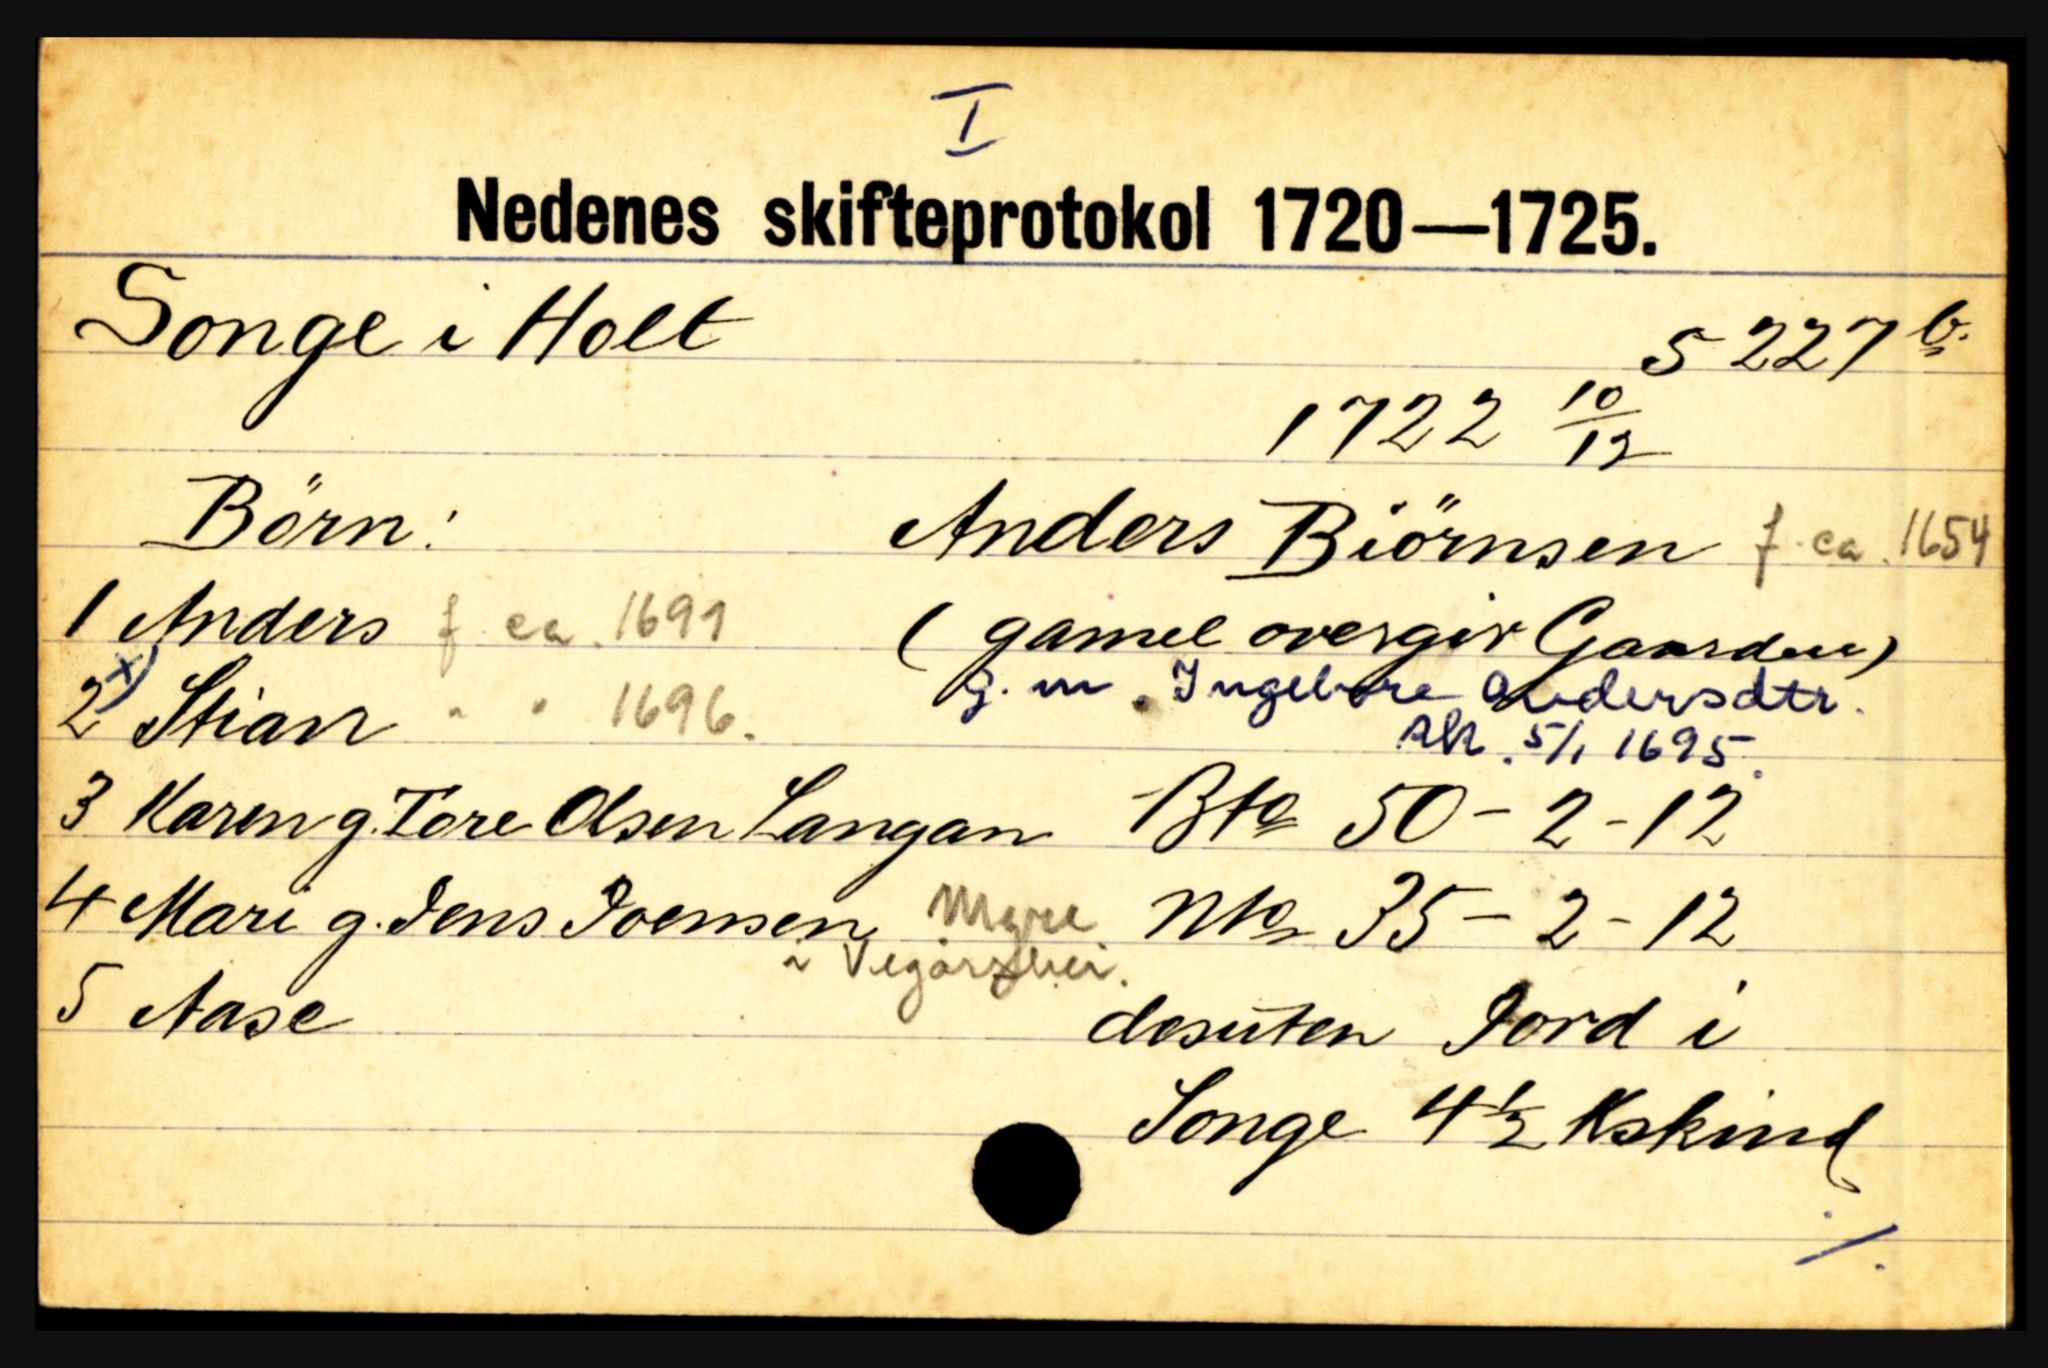 I
Nedenes skifteprotokol 1720—1725.
Songe i Holt
S 227 b.
1722 10/12
Börn:
Anders Biörnsen f. ca. 1654
1 Anders f ca. 1691
(gamel overgir Gaarden)
g. m. Ingebore Andersdtr.
2 x) Stian " " 1696.
5/1 1695.
3 Karen g. Tore Olsen Langan
Bto 50-2-12
4 Mari g. Jens Joensen Myre
i Vegårshei.
Nto 35-2-12
5 Aase
desuten Jord i
Songe 4 1/2 Kskind
./.